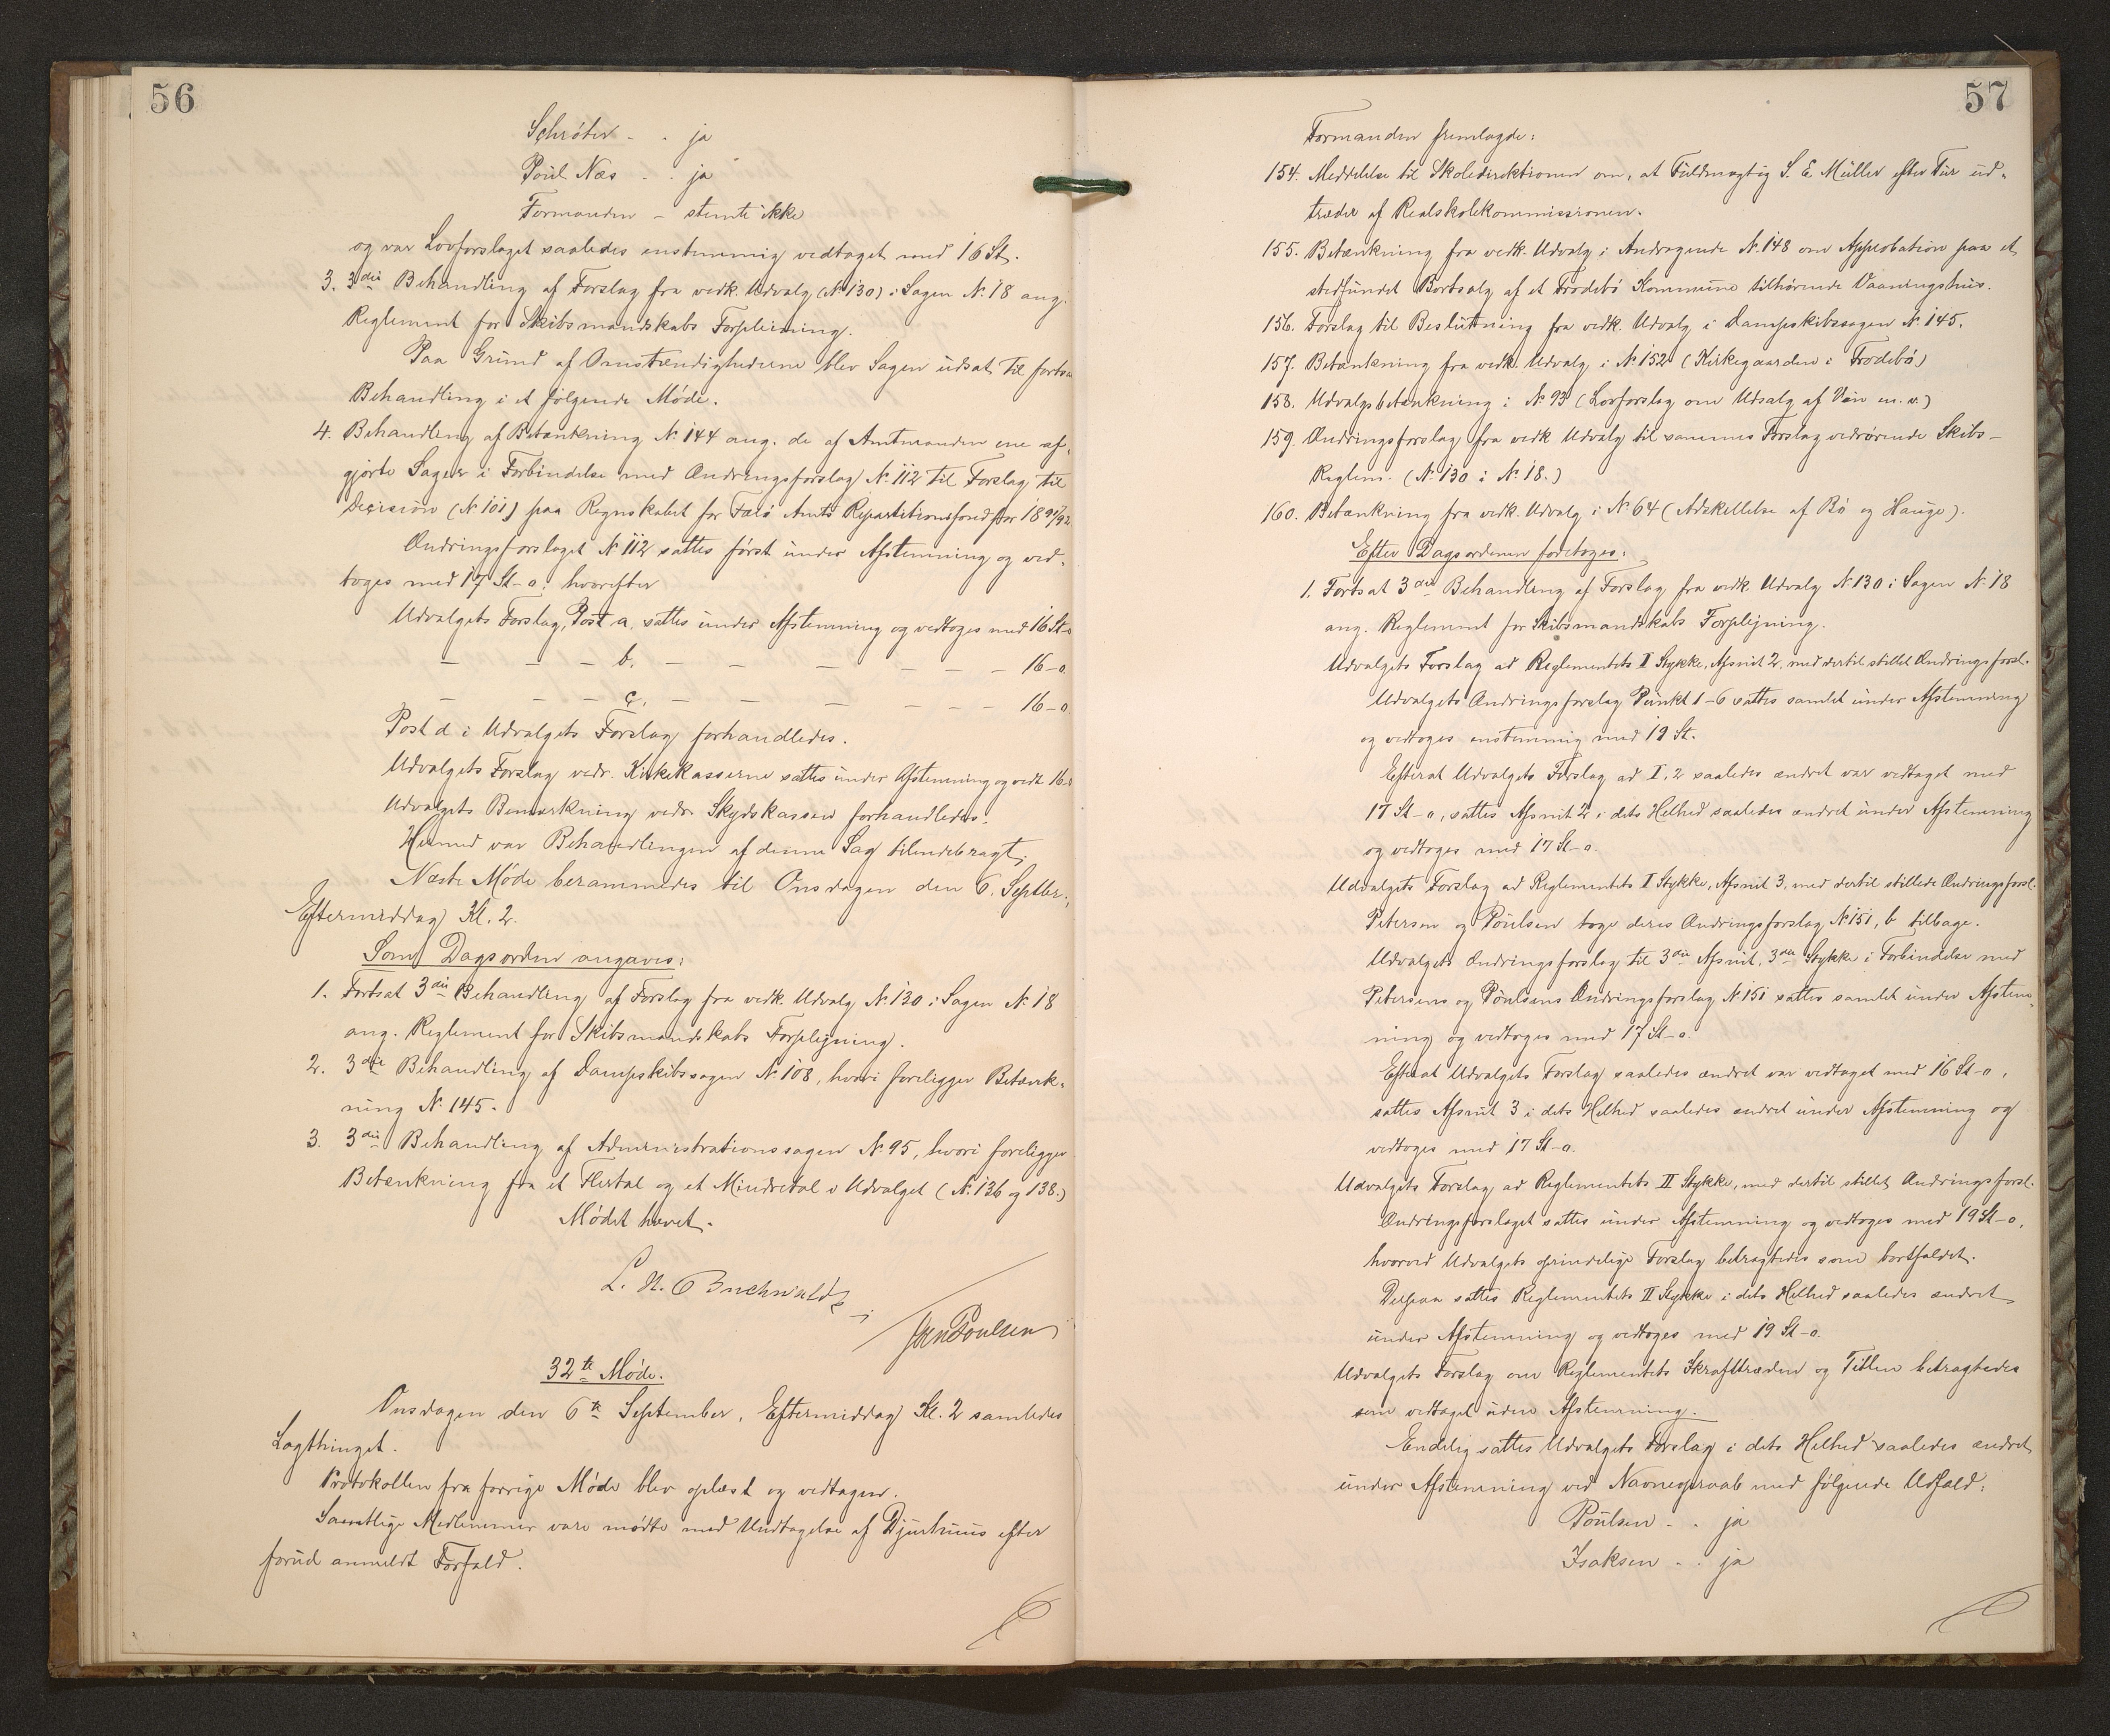 56
Schróter - . ja
Poül Næs . . ja
Formanden - stemte ikke
og var Lovforslaget saaledes enstemmig vedtaget med 16 St.
3. 3die Behandling af Forslag fra vedk. Udvalg (№ 130) i Sagen № 18 ang.
Reglement for Skibsmandskabs Forpleining.
Paa Grund af Omstændighederne blev Sagen udsat til fortsa
Behandling i et følgende Møde.
4. Behandling af Betænkning № 144 ang. de af Amtmanden ene af-
gjorte Sager i Forbindelse med Ændringsforslag № 112 til Forslag til
Decision (№ 101) paa Regnskabet for Færø Amts Repartitionsfond for 1891/92
Ændringsforslaget № 112 sattes først under Afstemning og ved-
toges med 17 St-0, hvorefter
Udvalgets Forslag, Post a, sattes under Afstemning og vedtoges med 16 St-0
— — — b. — — — — — — 16-0.
— — — c. — — — — — — 16-0
Post d i Udvalgets Forslag forhandledes.
Udvalgets Forslag vedr. Kirkekasserne sattes under Afstemning og vedt. 16-0
Udvalgets Bemærkning vedr. Skydskassen forhandledes.
Hermed var Behandlingen af denne Sag tilendebragt.
Næste Møde berammedes til Onsdagen den 6. Septbr.,
Eftermiddag Kl. 2.
Som Dagsorden angaves:
1. Fortsat 3die Behandling af Forslag fra vedk. Udvalg № 130 i Sagen № 18
ang. Reglement for Skibsmandskabs Forplejning.
2. 3die Behandling af Dampskibssagen № 108, hvori foreligger Betænk-
ning № 145.
3. 3die Behandling af Administrationssagen № 95, hvori foreligger
Betænkning fra et Flertal og et Mindretal i Udvalget (№ 136 og 138.)
Mødet hævet.
L. H. Buchwaldt
Joen Poulsen
32te Møde.
Onsdagen den 6te September, Eftermiddag Kl. 2 samledes
Lagthinget.
Protokollen fra forrige Møde blev oplæst og vedtagen.
Samtlige Medlemmer vare mødte med Undtagelse af Djurhuus efter
forud anmeldt Forfald.
57
Formanden fremlagde:
154. Meddelelse til Skoledirektionen om, at Fuldmægtig S. E. Müller efter Tur ud-
træder af Realskolekommissionen.
155. Betænkning fra vedk. Udvalg i Andragende № 148 om Approbation paa et
stedfundet Bortsalg af et Frodebø Kommune tilhørende Vaaningshus.
156. Forslag til Beslutning fra vedk. Udvalg i Dampskibssagen № 145.
157. Betænkning fra vedk. Udvalg i № 152 (Kirkegaarden i Frodebø)
158. Udvalgsbetænkning i № 93 (Lovforslag om Udsalg af Vin m.v.)
159. Ændringsforslag fra vedk Udvalg til sammes Forslag vedrørende Skibs-
Reglem. (№ 130 i № 18.)
160. Betænkning fra vedk. Udvalg i № 64 (Adskillelse af Bø og Hauge).
Efter Dagsordenen foretoges:
1. Fortsat 3die Behandling af Forslag fra vedk. Udvalg № 130 i Sagen № 18
ang. Reglement for Skibsmandskabs Forplejning.
Udvalgets Forslag ad Reglementets I Stykke, Afsnit 2, med dertil stillet Ændringsforsl.
Udvalgets Ændringsforslag Punkt 1-6 sattes samlet under Afstemning
og vedtoges enstemmig med 19 St.
Efterat Udvalgets Forslag ad I, 2 saaledes ændret var vedtaget med
17 St-0, sattes Afsnit 2 i dets Helhed saaledes ændret under Afstemning
og vedtoges med 17 St-0.
Udvalgets Forslag ad Reglementets I Stykke, Afsnit 3, med dertil stillede Ændringsforsl.
Petersen og Poulsen toge deres Ændringsforslag № 151, b tilbage.
Udvalgets Ændringsforslag til 3die Afsnit, 3die Stykke i Forbindelse med
Petersens og Poulsens Ændringsforslag № 151 sattes samlet under Afstem-
ning og vedtoges med 17 St-0.
Efterat Udvalgets Forslag saaledes ændret var vedtaget med 16 St-0,
sattes Afsnit 3 i dets Helhed saaledes ændret under Afstemning og
vedtoges med 17 St-0.
Udvalgets Forslag ad Reglementets II Stykke, med dertil stillet Ændringsforsl.
Ændringsforslaget sattes under Afstemning og vedtoges med 19 St-0,
hvorved Udvalgets oprindelige Forslag betragtedes som bortfaldet.
Derpaa sattes Reglementets II Stykke i dets Helhed saaledes ændret
under Afstemning og vedtoges med 19 St-0.
Udvalgets Forslag om Reglementets Ikrafttræden og Titlen betragtedes
som vedtaget uden Afstemning.
Endelig sattes Udvalgets Forslag i dets Helhed saaledes ændret
under Afstemning ved Navneopraab med følgende Udfald:
Poulsen - . ja
Isaksen . . ja